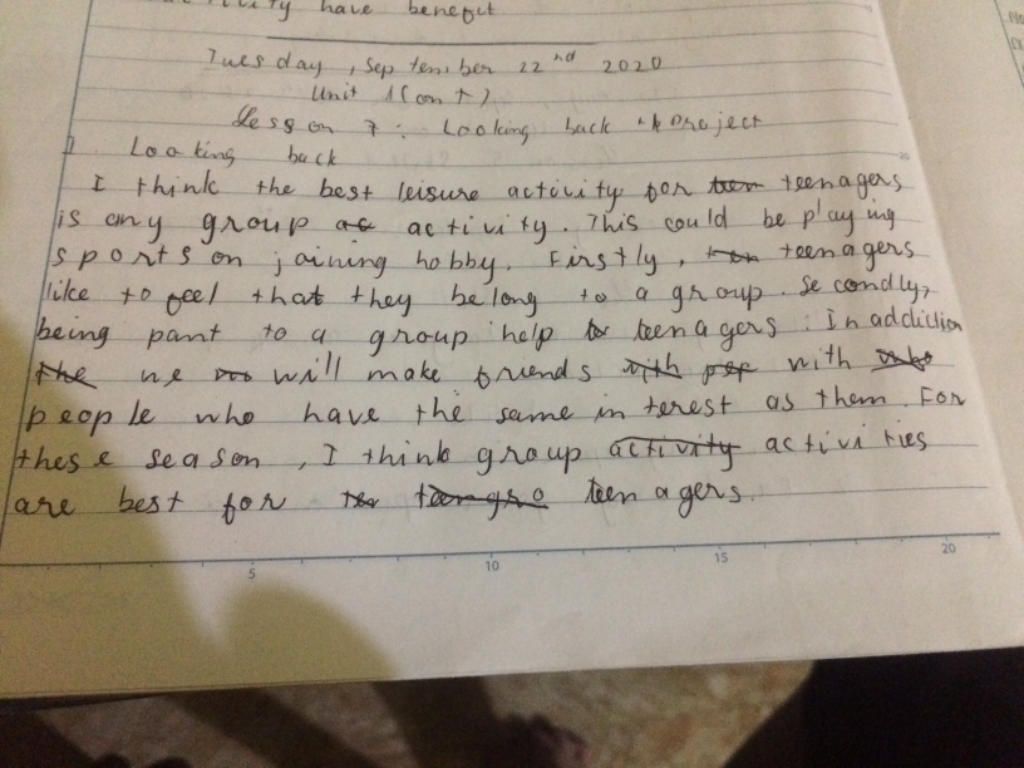 have benefit
Tuesday, September 22nd 2020
Unit 1 (cont)
Lesson 7: Looking back + Project
I Looking back
I think the best leisure activity for teenagers
is any group activity. This could be playing
sports on joining hobby. Firstly, teenagers
like to feel that they belong to a group. Secondly,
being pant to a group help teenagers. In addiction
we will make friends with
people who have the same interest as them. For
these season, I think group activity activities
are best for teenagers.
5 10 15 20